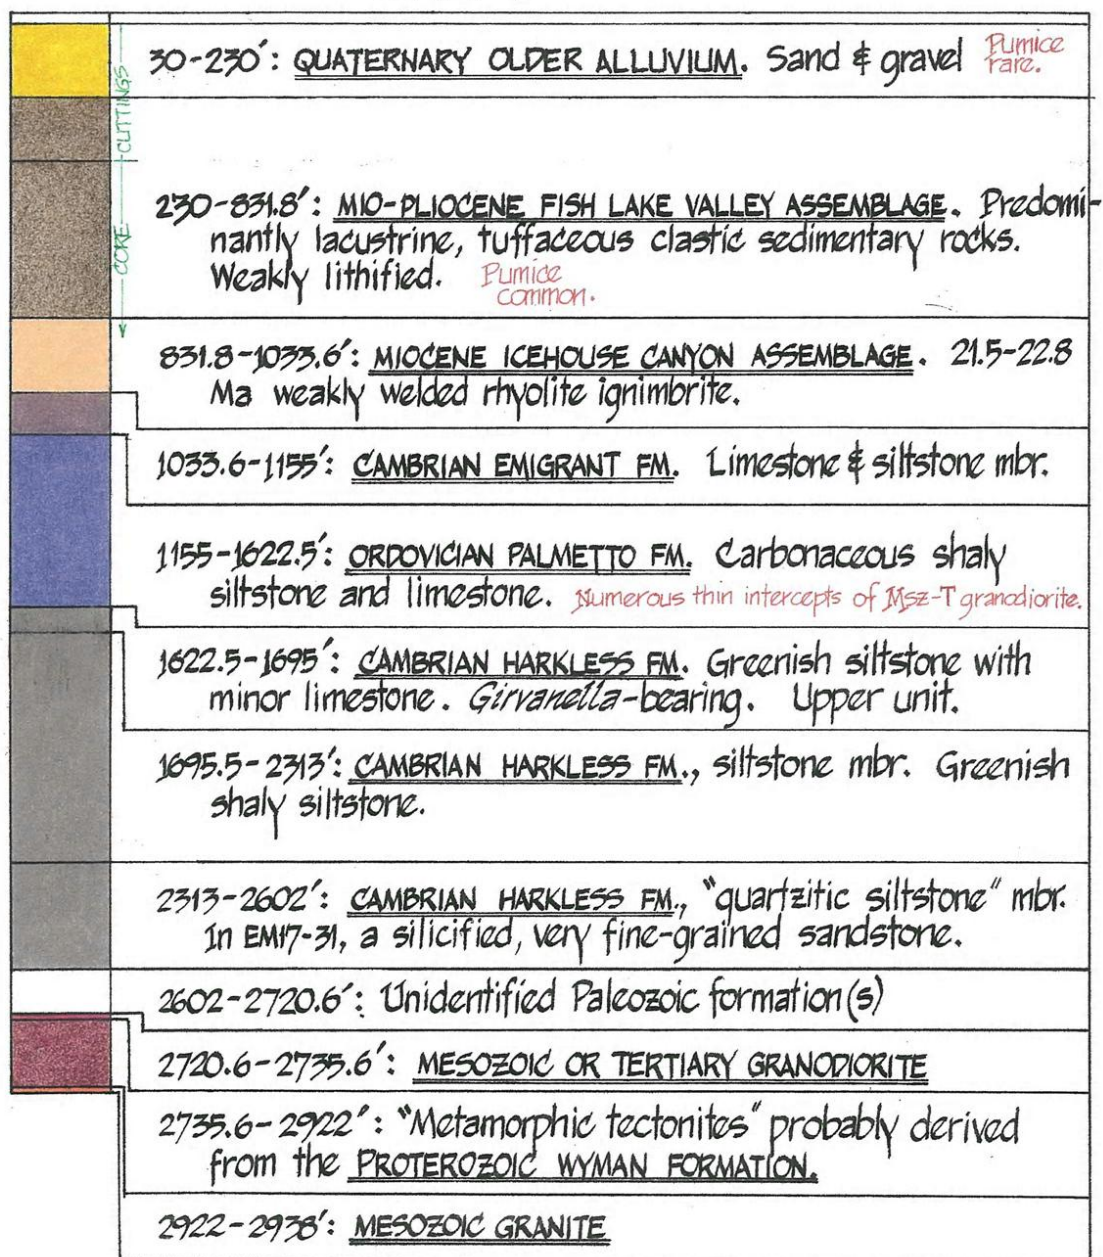 30-230′: QUATERNARY OLDER ALLUVIUM. Sand & gravel Pumice
rare.
CUTTINGS
CORE
230-831.8′: MIO-PLIOCENE FISH LAKE VALLEY ASSEMBLAGE. Predomi-
nantly lacustrine, tuffaceous clastic sedimentary rocks.
Weakly lithified. Pumice
common.
831.8-1033.6′: MIOCENE ICEHOUSE CANYON ASSEMBLAGE. 21.5-22.8
Ma weakly welded rhyolite ignimbrite.
1033.6-1155′: CAMBRIAN EMIGRANT FM. Limestone & siltstone mbr.
1155-1622.5′: ORDOVICIAN PALMETTO FM. Carbonaceous shaly
siltstone and limestone. Numerous thin intercepts of Msz-T granodiorite.
1622.5-1695′: CAMBRIAN HARKLESS FM. Greenish siltstone with
minor limestone. Girvanella-bearing. Upper unit.
1695.5-2313′: CAMBRIAN HARKLESS FM., siltstone mbr. Greenish
shaly siltstone.
2313-2602′: CAMBRIAN HARKLESS FM., "quartzitic siltstone" mbr.
In EM17-31, a silicified, very fine-grained sandstone.
2602-2720.6′: Unidentified Paleozoic formation(s)
2720.6-2735.6′: MESOZOIC OR TERTIARY GRANODIORITE
2735.6-2922′: "Metamorphic tectonites" probably derived
from the PROTEROZOIC WYMAN FORMATION.
2922-2938′: MESOZOIC GRANITE